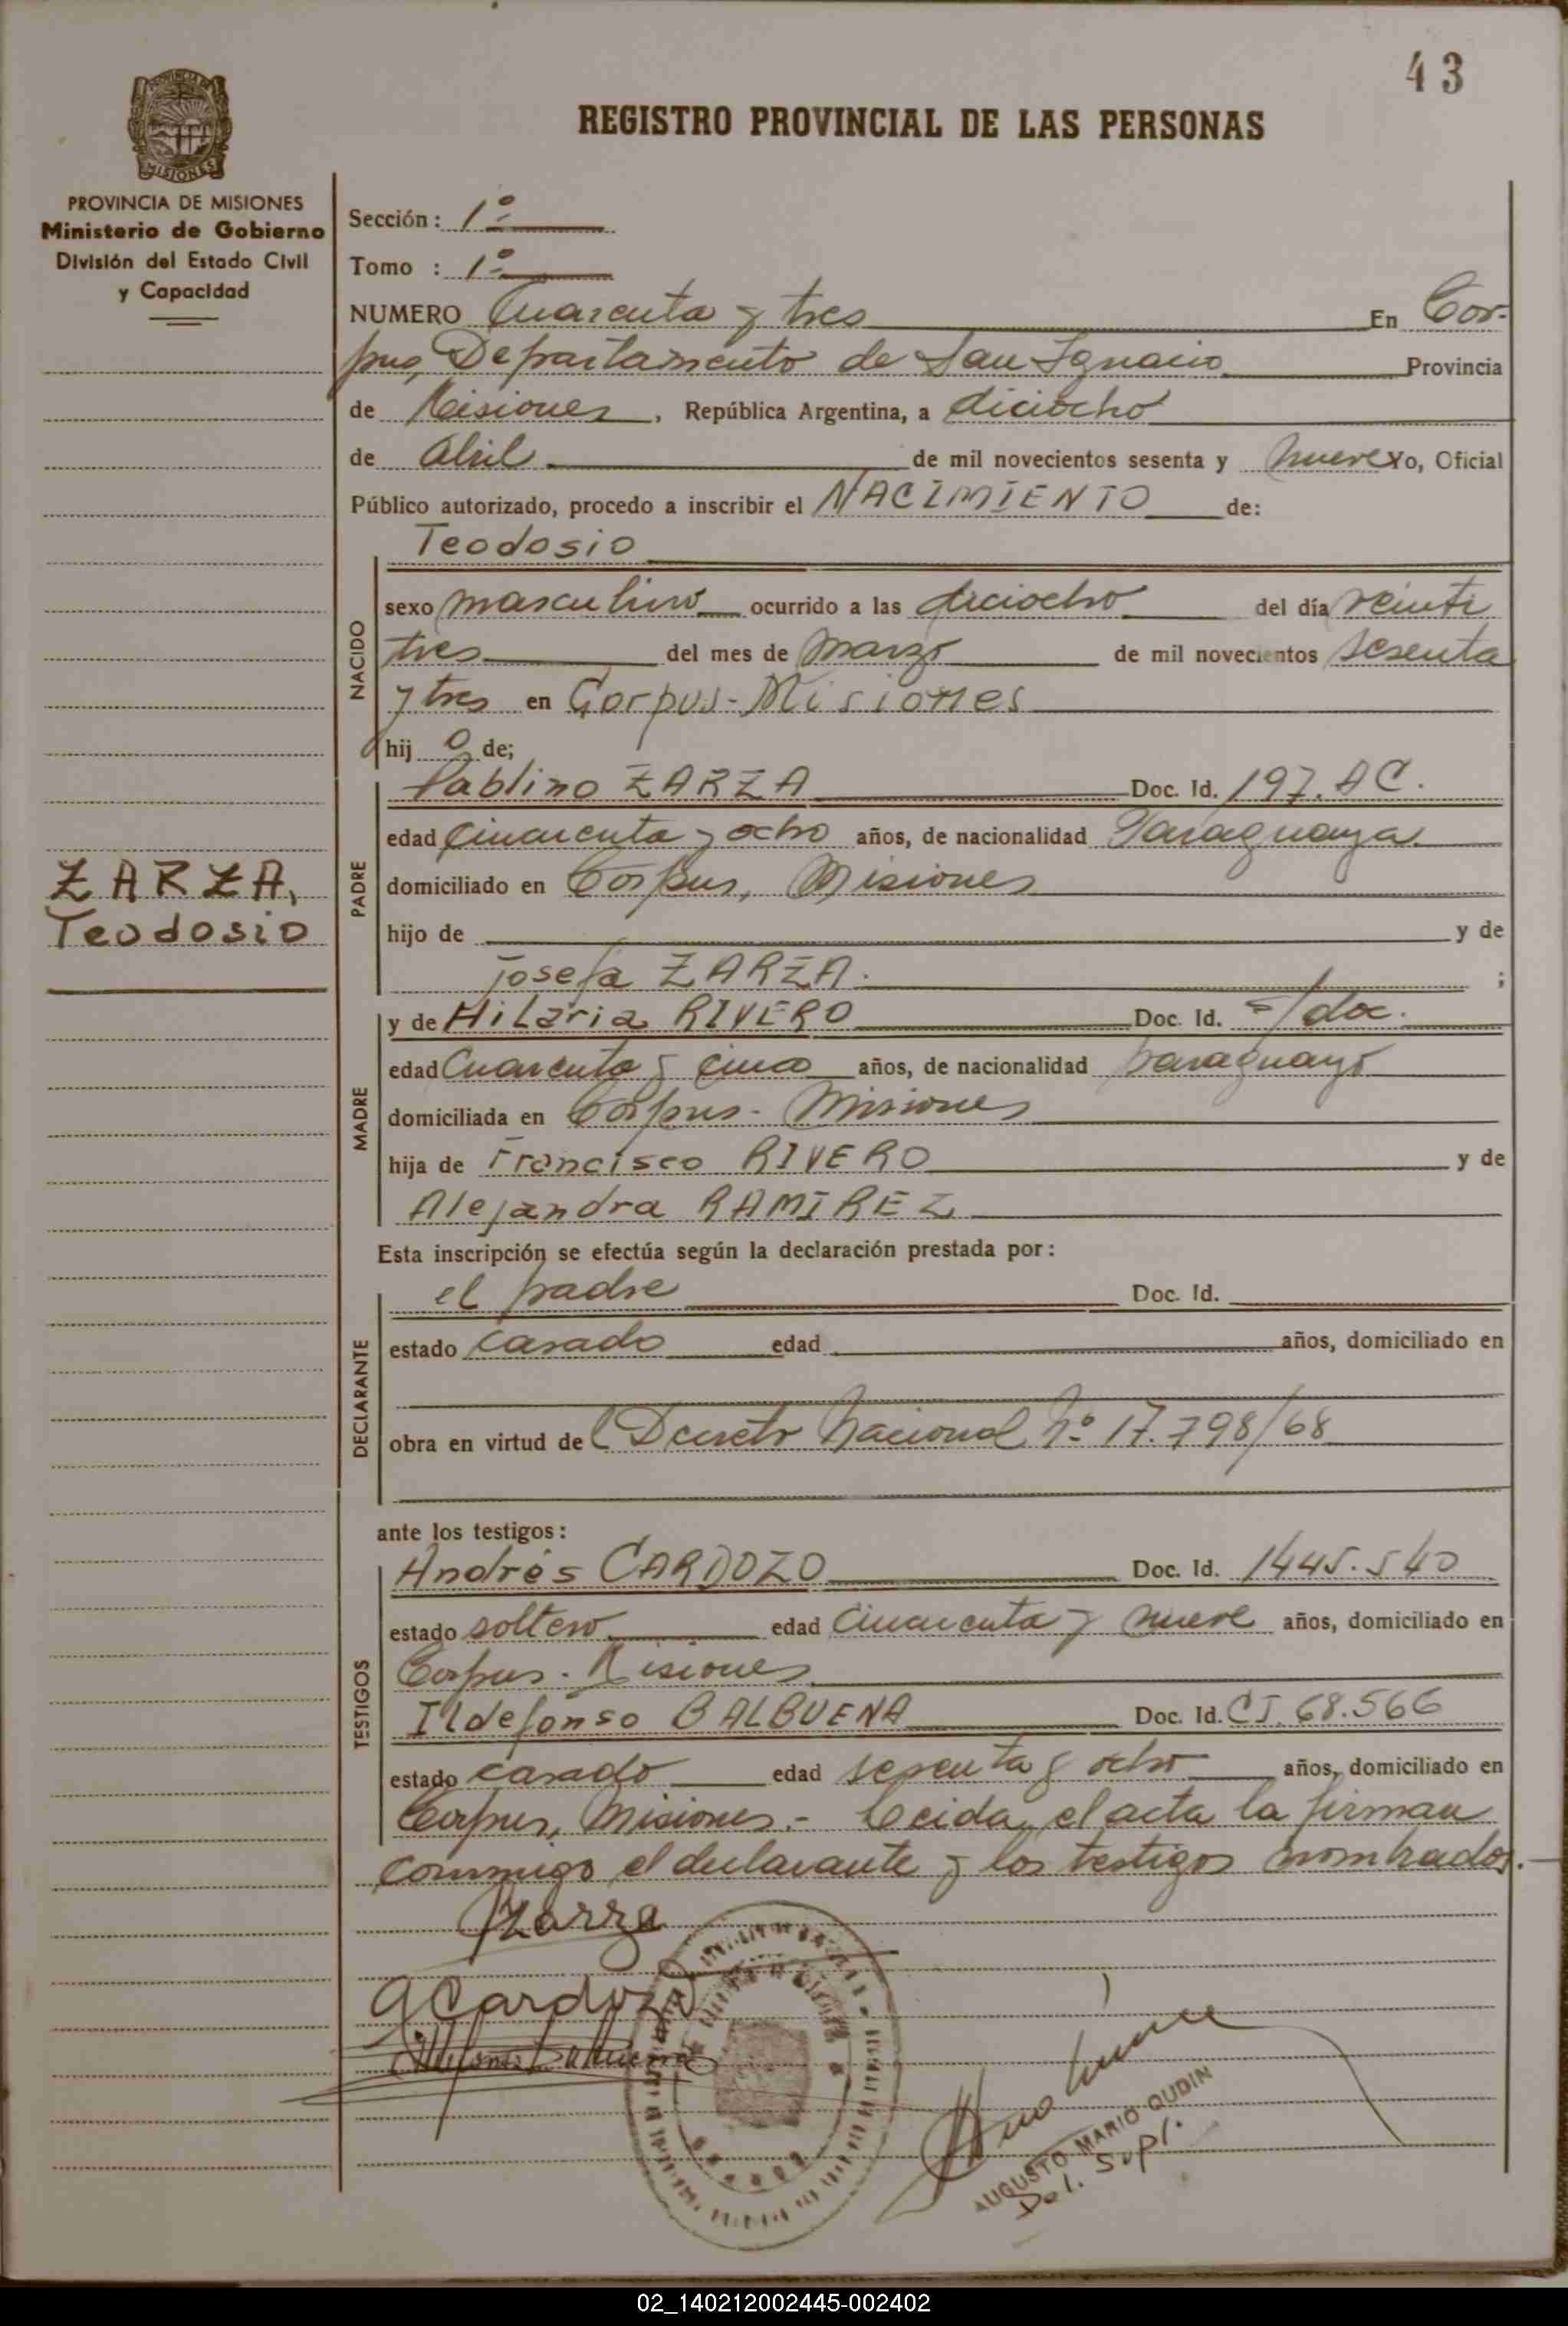 43
PROVINCIA DE MISIONES
Ministerio de Gobierno
División del Estado Civil
y Capacidad
REGISTRO PROVINCIAL DE LAS PERSONAS
Sección: 1º
Tomo : 1º
NUMERO Cuarenta y tres En Cor-
pus, Departamento de San Ignacio Provincia
de Misiones, República Argentina, a diciocho
de abril de mil novecientos sesenta y nueve yo, Oficial
Público autorizado, procedo a inscribir el NACIMIENTO de:
Teodosio
NACIDO
sexo masculino ocurrido a las diciocho del día veinti
tres del mes de marzo de mil novecientos sesenta
y tres en Corpus-Misiones
hij o de;
ZARZA,
Teodosio
PADRE
Pablino ZARZA Doc. Id. 197. AC.
edad cincuenta y ocho años, de nacionalidad Paraguaya.
domiciliado en Corpus, Misiones
hijo de y de
Josefa ZARZA. ;
MADRE
y de Hilaria RIVERO Doc. Id. s/doc.
edad Cuarenta y cinco años, de nacionalidad paraguaya
domiciliada en Corpus- Misiones
hija de Francisco RIVERO y de
Alejandra RAMIREZ
Esta inscripción se efectúa según la declaración prestada por:
DECLARANTE
el padre Doc. Id.
estado casado edad años, domiciliado en
obra en virtud del Decreto Nacional Nº 17.798/68
ante los testigos:
TESTIGOS
Andrés CARDOZO Doc. Id. 1445.540
estado soltero edad cincuenta y nueve años, domiciliado en
Corpus. Misiones
Ildefonso BALBUENA Doc. Id. CI. 68.566
estado casado edad sesenta y ocho años, domiciliado en
Corpus, Misiones.- Leida el acta la firman
conmigo el declarante y los testigos nombrados.
Pzarza
ACardozo
Ildefonso Balbuena
AUGUSTO MARIO OUDIN
Del. Supl.
02_140212002445-002402